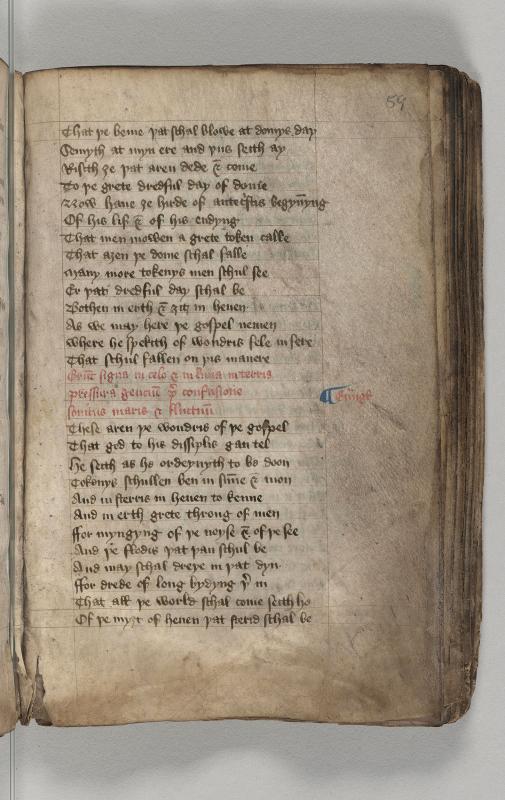 59
That þe beme þat schal blowe at domys day
Semyth at myn ere and þus seith ay
Riseth ȝe þat aren dede & come
To þe grete dredful day of dome
Now haue ȝe hirde of antec͛stis begyn̄yng
Of his lif & of his endyng
That men mowen a grete token calle
That aȝen þe dome schal falle
Many more tokenys men schul see
Er þat dredful day schal be
Bothen in erth & ȝit in heuen
As we may here þe gospel neuen
Where he spekith of wondris fele in fere
That schul fallen on þis manere
Erūt signa in celo & in luna in terris
pressura genciū p͛ confusione
sonitus maris & fluctuū
These aren þe wondris of þe gospel
That god to his dissiplis gan tel
He seith as he ordeynyth to be doon
Tokonys schullen ben in sūne & mon
And in sterris in heuen to kenne
And in erth grete throng of men
ffor myngyng of þe noyse & of þe see
And þe flodis þat þan schul be
And may schal dreye in þat dyn
ffor drede of long bydyng þ͛ in
That all þe world schal come seith he
Of þe myȝt of heuen þat sterid schal be